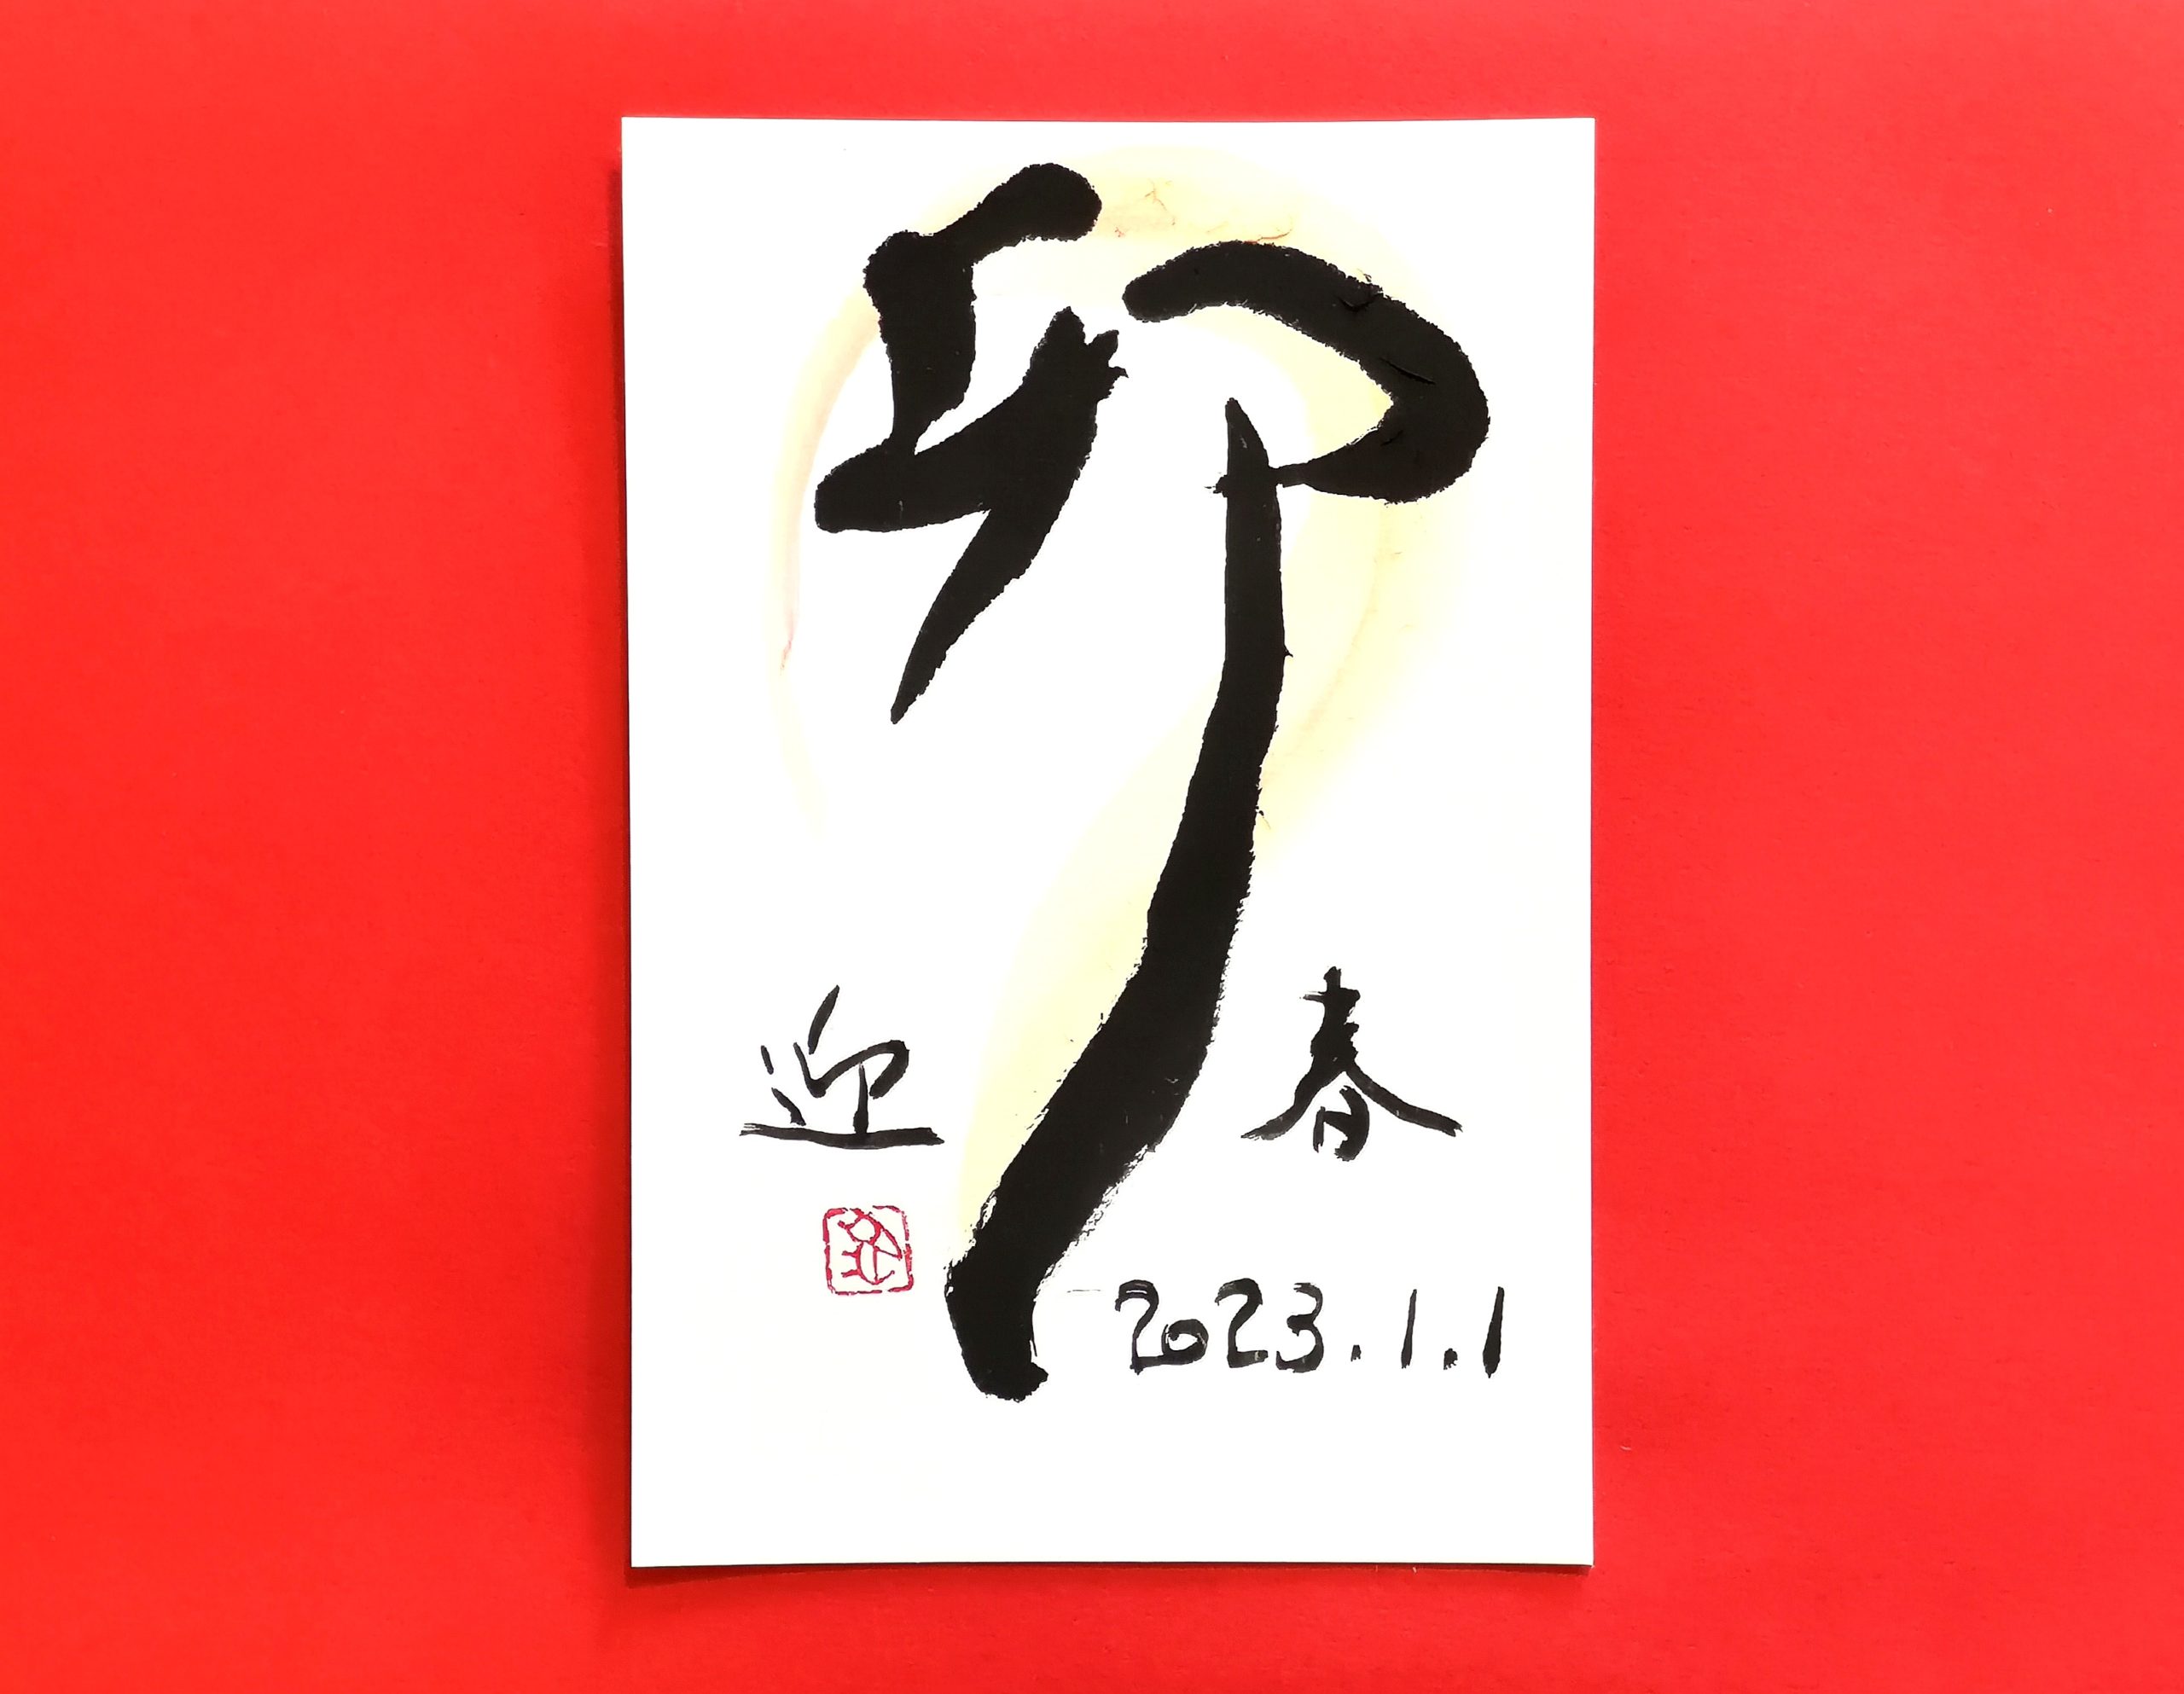 卯
迎春
2023.1.1